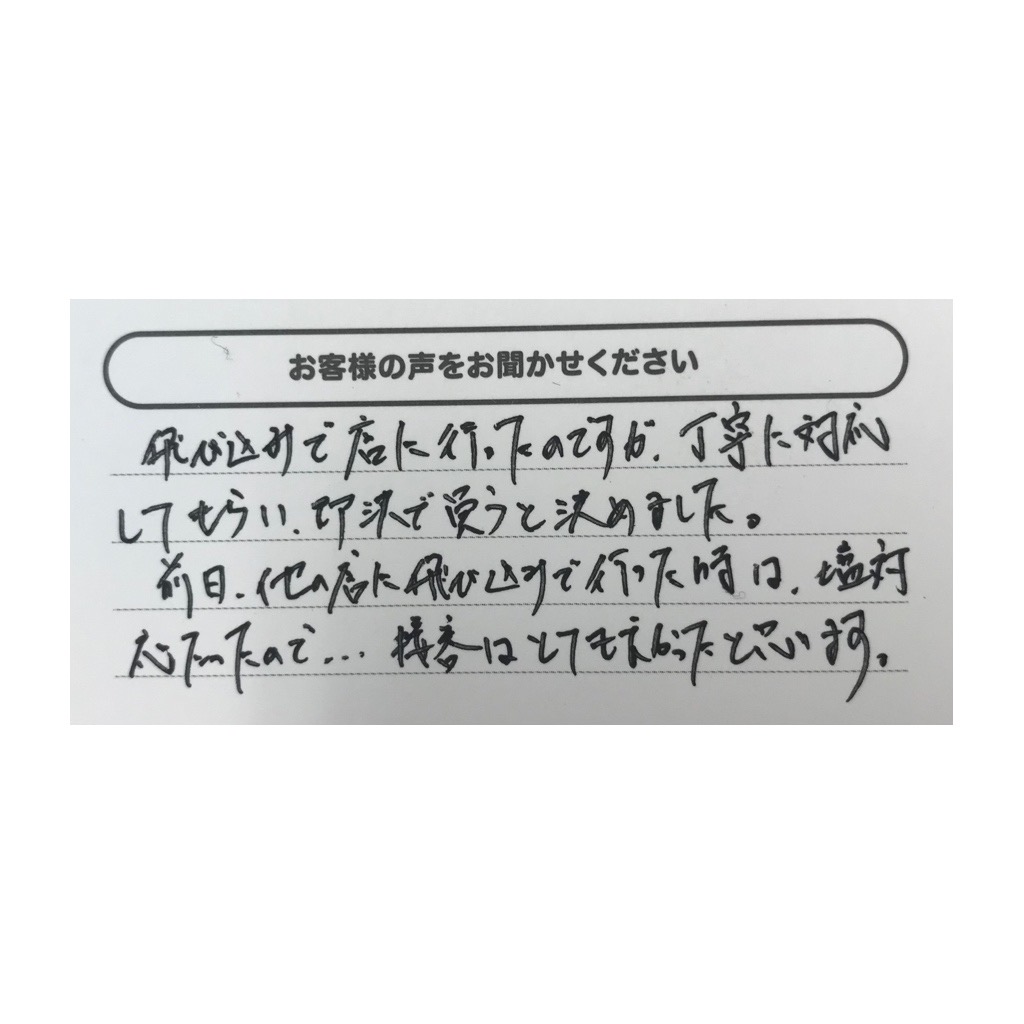 お客様の声をお聞かせください
飛び込みで店に行ったのですが、丁寧に対応
してもらい、即決で買うと決めました。
前日、他の店に飛び込みで行った時は、塩対
応だったので… 接客はとても良かったと思います。